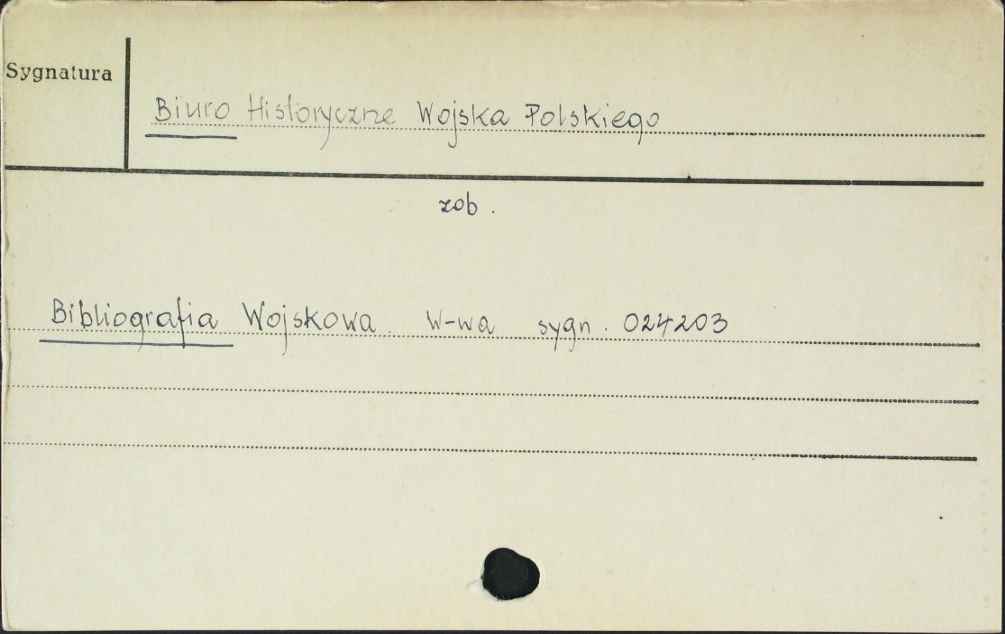 Sygnatura
Biuro Historyczne Wojska Polskiego
zob.
Bibliografia Wojskowa W-wa sygn. 024203